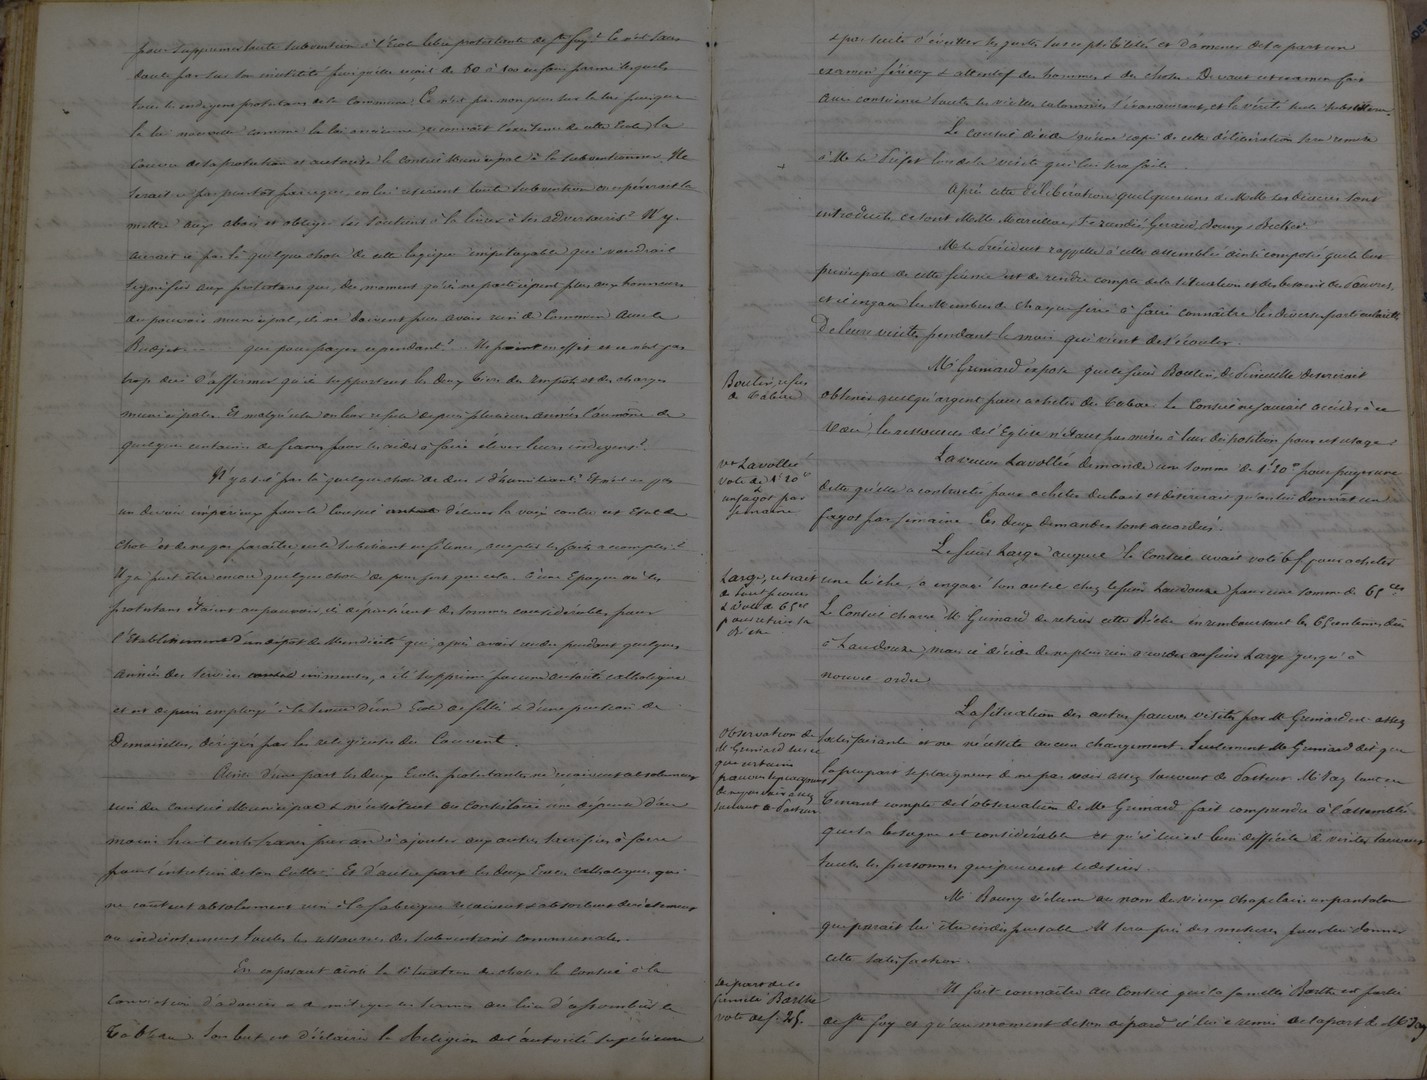 pour supprimer toute subvention à l'Ecole libre protestante de Ste foy? Ce n'est sans
doute pas sur son inutilité puisqu'elle reçoit de 80 à 100 enfans parmi lesquels
tous les indigens protestans de la Commune. Ce n'est pas non plus sur la loi puisque
la loi nouvelle comme la loi ancienne reconnait l'existence de cette Ecole, la
couvre de sa protection et autorise le conseil municipal à la subventionner. Ne
serait-ce pas plustôt parceque, en lui retirant toute subvention on espérerait la
mettre aux abois et obliger ses soutiens à la livrer à ses adversaires? N'y
aurait-il pas là quelque chose de cette logique impitoyable qui voudrait
signifier aux protestans que, du moment qu'ils ne participent plus aux honneurs
du pouvoir municipal, ils ne doivent plus avoir rien de Commun avec le
Budjet que pour payer cependant! Ils paient en effet et ce n'est pas
trop dire d'affirmer qu'ils supportent les deux tiers des Impôts et des charges
municipales. Et malgré cela on leur refuse depuis plusieurs années l'aumône de
quelques centaines de francs pour les aider à faire élever leurs indigens!
N'y a-t-il pas là quelque chose de dur et d'humiliant? Et n'est-ce pas
un devoir impérieux pour le Conseil d'élever la voix contre cet Etat de
chose et de ne pas paraître, en le subissant en silence, accepter les faits accomplis?
Il y a peut être encore quelque chose de plus fort que cela. A une Epoque où les
protestans étaient au pouvoir, ils dépensèrent des sommes considérables pour
l'Etablissement d'un dépôt de Mendicité qui, après avoir rendu pendant quelques
années des services éminents, a été supprimé par une autorité catholique
et est depuis employé à la tenue d'une Ecole de filles et d'une pension de
Demoiselles, dirigées par les religieuses du Couvent.
Ainsi d'une part les deux Ecoles protestantes ne reçoivent absolument
rien du conseil Municipal et nécessitent au Consistoire une dépense d'au
moins huit cents francs par an à ajouter aux autres sacrifices à faire
pour l'entretien de son Culte. Et d'autre part les deux Ecoles Catholiques qui
ne coûtent absolument rien à la fabrique reçoivent et absorbent directement
ou indirectement toutes les ressources des subventions communales.
En exposant ainsi la situation des choses le Conseil a la
conviction d'adoucir et de mitiger les termes au lieu d'assombrir le
Tableau. Son but est d'éclairer la Religion de l'autorité supérieure
et par suite d'éveiller sa juste susceptibilité et d'amener de sa part un
examen sérieux et attentif des hommes et des choses. Devant cet examen fait
avec conscience toutes les vieilles calomnies s'évanouiront, et la vérité seule subsistera.
Le conseil décide qu'une copie de cette délibération sera remise
à Mr le Préfet lors de la visite qui lui sera faite.
Après cette délibération quelques uns de MM. les diacres sont
introduits ce sont MM. Marcillou, Géraud, Bouny, Becker.
Mr le Président rappelle à cette assemblée ainsi composée que le but
principal de cette réunion est de rendre compte de la situation et des besoins des Pauvres,
et il engage les Membres de chaque série à faire connaître les diverses particularités
de leurs visites pendant le mois qui vient de s'écouler.
Boutin, refus
de tabac
Mr Grenard expose que le sieur Boutin, de Pineuilh désirerait
obtenir quelqu'argent pour acheter du tabac. Le Conseil ne saurait accéder à ce
vœu, les ressources de l'Eglise n'étant pas mises à leur disposition pour cet usage.
ve Lavollée
vote de 1f 20c
& un fagot par
semaine
La veuve Lavollée demande une somme de 1f 20c pour payer une
dette qu'elle a contractée pour acheter du bois et désirerait qu'on lui donnat un
fagot par semaine. Ces deux demandes sont accordées.
Large, retrait
de tout secours
& vote de 65c
pour retirer sa
Bêche
Le sieur Large auquel le Conseil avait voté 6f pour acheter
une bêche, a engagé son outil chez le sieur Laudouze pour une somme de 65ces
Le Conseil charge Mr Grenard de retirer cette Bêche en remboursant les 65 centimes dûs
à Laudouze, mais il décide de ne plus rien accorder au sieur Large jusqu'à
nouvel ordre.
Observation de
Mr Grenard sur ce
que certains
pauvres se plaignent
de ne pas voir assez
souvent le Pasteur
La situation des autres pauvres visités par Mr Grenard est assez
satisfaisante et ne nécessite aucun changement. Seulement Mr Grenard dit que
la plupart se plaignent de ne pas voir assez souvent le Pasteur. Mr Jay tout en
tenant compte de l'observation de Mr Grenard fait comprendre à l'assemblée
que la besogne est considérable et qu'il lui est bien difficile de visiter souvent
toutes les personnes qui peuvent le désirer.
Mr Bouny réclame au nom du vieux Chapelain un pantalon
qui parait lui être indispensable. Il sera pris des mesures pour lui donner
cette satisfaction.
Départ de la
famille Barthe
vote de f. 25.
Il fait connaître au Conseil que la famille Barthe est partie
de Ste foy et qu'au moment de son départ il lui a remis de la part de Mr Jay